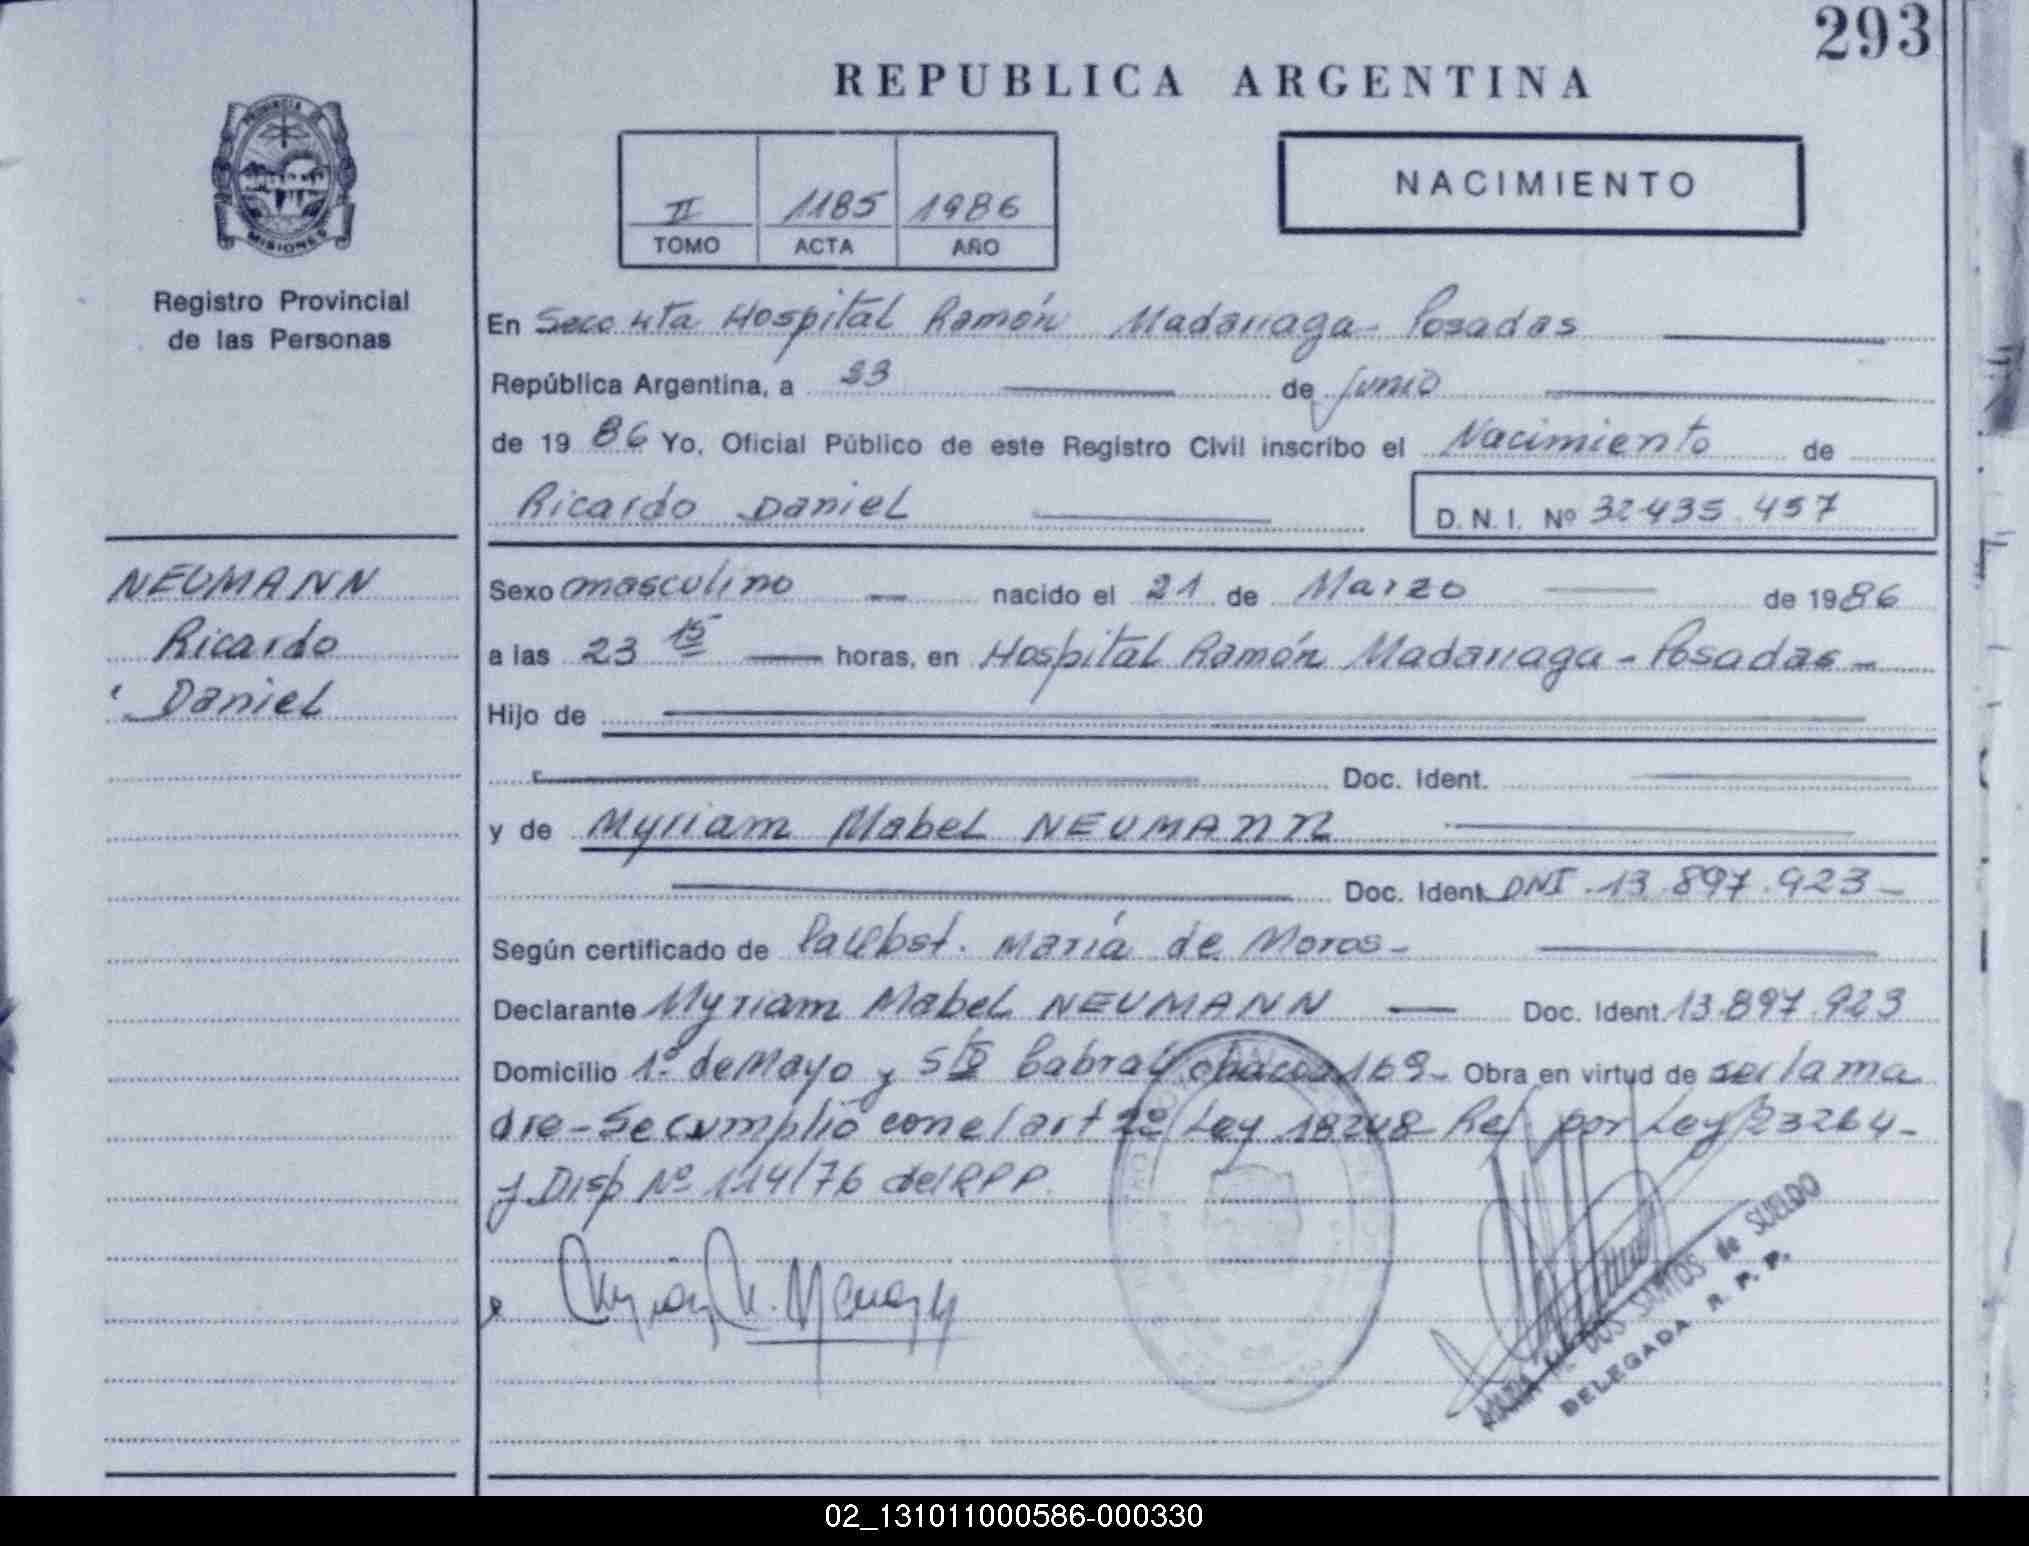 293
REPUBLICA ARGENTINA
PROVINCIA DE
MISIONES
Registro Provincial
de las Personas
II 1185 1986
TOMO ACTA AÑO
NACIMIENTO
En Secc 4ta Hospital Ramón Madariaga - Posadas
República Argentina, a 23 de junio
de 1986 Yo, Oficial Público de este Registro Civil inscribo el Nacimiento de
Ricardo Daniel D. N. I. Nº 32.435.457
NEUMANN
Ricardo
Daniel
Sexo masculino nacido el 21 de Marzo de 1986
a las 23 15 horas, en Hospital Ramón Madariaga - Posadas -
Hijo de
Doc. Ident.
y de Myriam Mabel NEUMANN
Doc. Ident. DNI. 13.897.923 -
Según certificado de María de Moros -
Declarante Myriam Mabel NEUMANN Doc. Ident. 13.897.923
Domicilio 1º de Mayo y Sto Cabral chacra 169 - Obra en virtud de ser la ma
dre - Se cumplió con el art 2º Ley 18248 Ref por Ley 23264 -
y Disp Nº 114/76 del RPP.
DOS SANTOS de SUELDO
DELEGADA R. P. P.
02_131011000586-000330